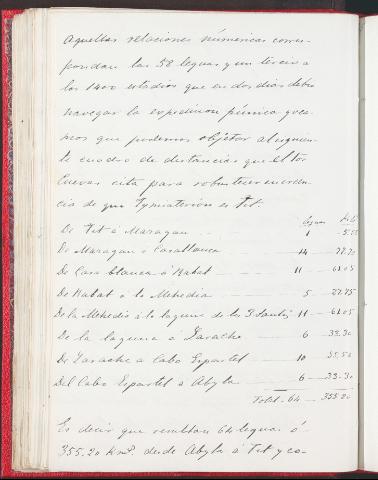 aquellas relaciones númericas corres-
pondan las 58 leguas y un tercio a
los 1400 estadios que en dos dias debio
navegar la expedicion púnica y ve-
mos que podemos objetar al siguien-
te cuadro de distancias que el Sor
Cuevas cita para robustecer su creen-
cia de que Tymiaterion es Tit.
leguas Kils
De Tit á Mazagan 1 5.55
De Mazagan a Casablanca 14 77.70
De Casa blanca á Rabat 11 61.05
De Rabat á la Mehedia 5 27.75
De la Mehedia á la laguna de los 3. Santos 11 61.05
De la laguna á Larache 6 33.30
De Larache a Cabo Espartel 10 55.50
Del Cabo Espartel a Abyla 6 33.30
Total 64 355.20
Es decir que resultan 64 leguas ó
355.20 Kmos. desde Abyla á Tit y co-